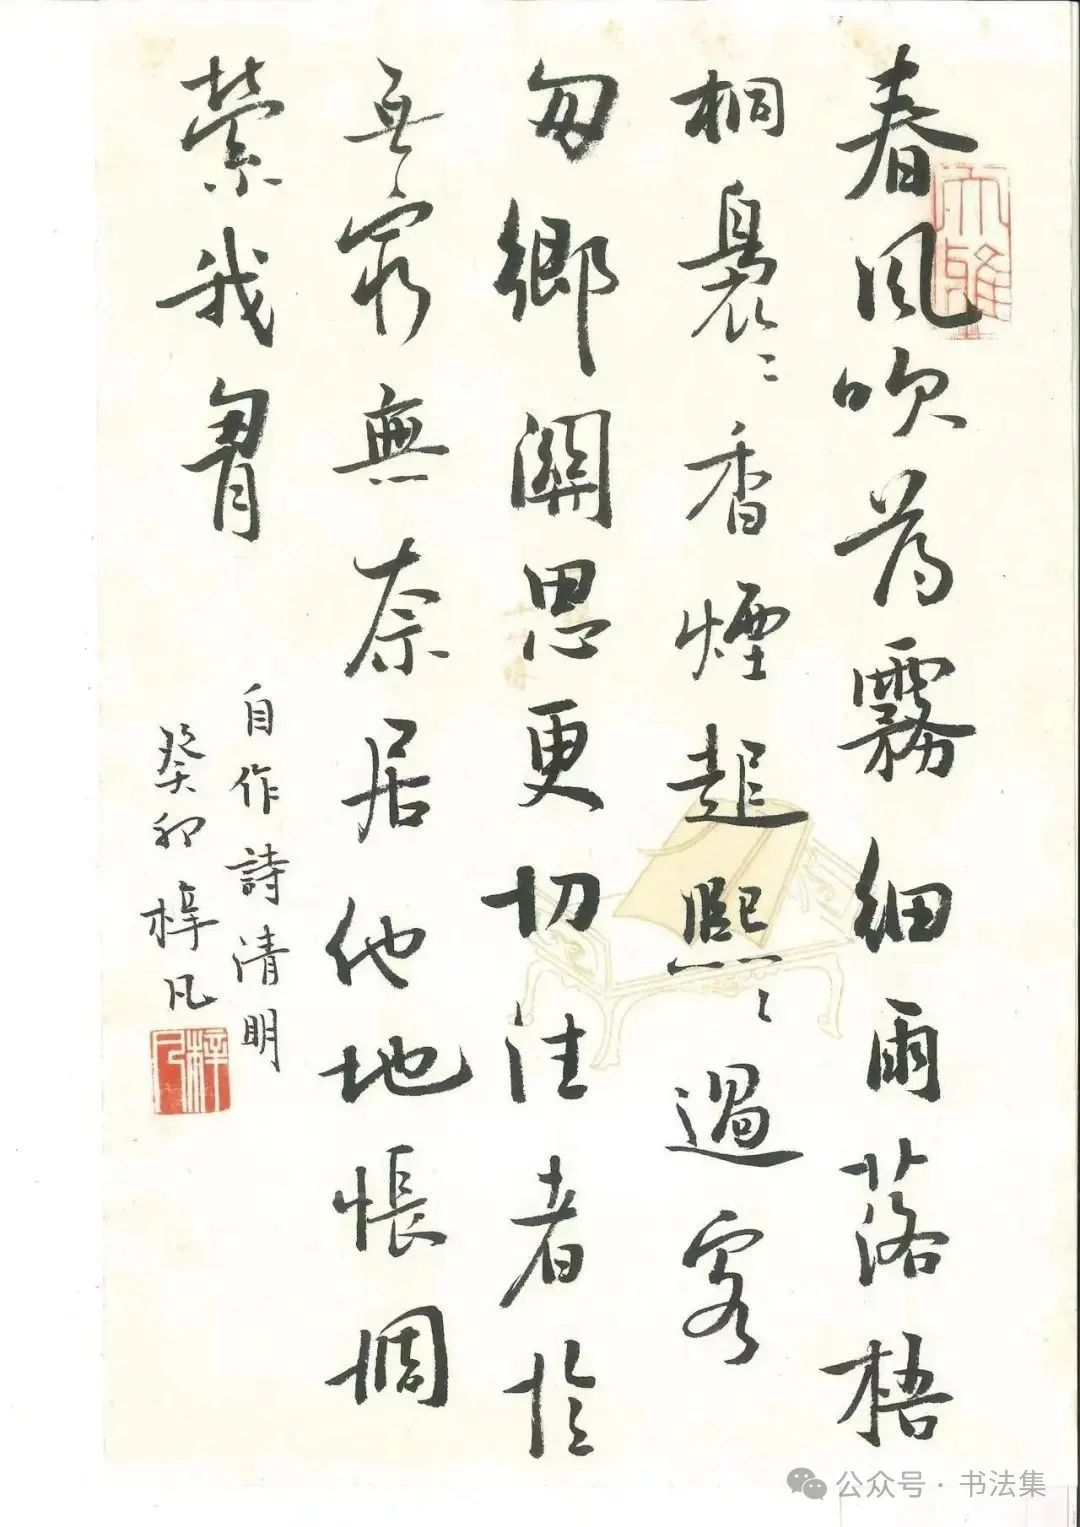 春風吹蒭霧細雨落梧
桐裊〻香煙起熙〻過客
匆鄉關思更切往者憶
無窮無奈居他地悵惆
縈我胷
自作詩清明
癸卯梓凡
梓凡
大雅
公众号·书法集